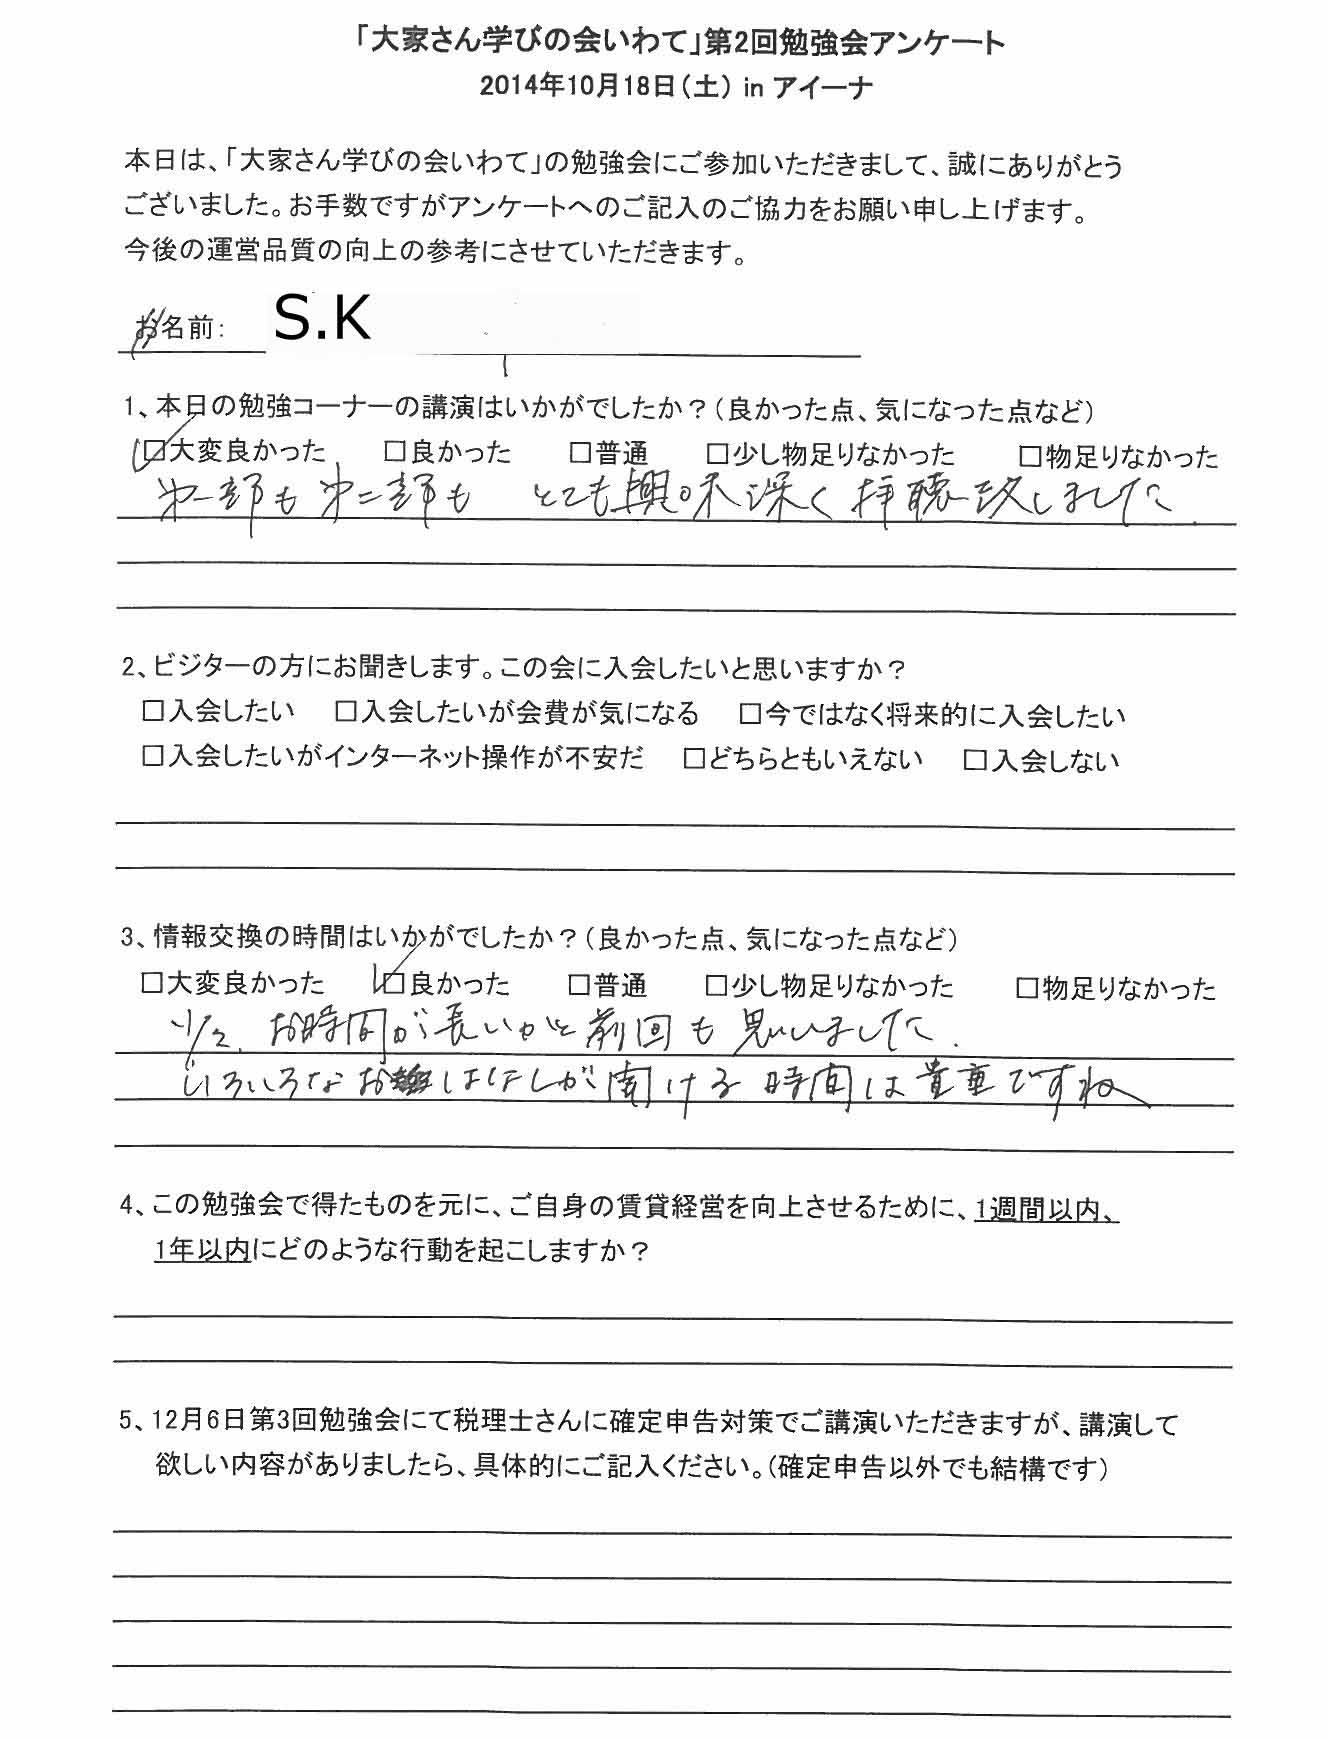 「大家さん学びの会いわて」第2回勉強会アンケート
2014年10月18日(土) in アイーナ
本日は、「大家さん学びの会いわて」の勉強会にご参加いただきまして、誠にありがとう
ございました。お手数ですがアンケートへのご記入のご協力をお願い申し上げます。
今後の運営品質の向上の参考にさせていただきます。
お名前: S.K
1、本日の勉強コーナーの講演はいかがでしたか？(良かった点、気になった点など)
☑大変良かった □良かった □普通 □少し物足りなかった □物足りなかった
第一部も第二部も とても興味深く拝聴致しました.
2、ビジターの方にお聞きします。この会に入会したいと思いますか？
□入会したい □入会したいが会費が気になる □今ではなく将来的に入会したい
□入会したいがインターネット操作が不安だ □どちらともいえない □入会しない
3、情報交換の時間はいかがでしたか？(良かった点、気になった点など)
□大変良かった ☑良かった □普通 □少し物足りなかった □物足りなかった
お時間が長いかと前回も思いました.
いろいろなおはなしが聞ける時間は貴重ですね
4、この勉強会で得たものを元に、ご自身の賃貸経営を向上させるために、1週間以内、
1年以内にどのような行動を起こしますか？
5、12月6日第3回勉強会にて税理士さんに確定申告対策でご講演いただきますが、講演して
欲しい内容がありましたら、具体的にご記入ください。(確定申告以外でも結構です)